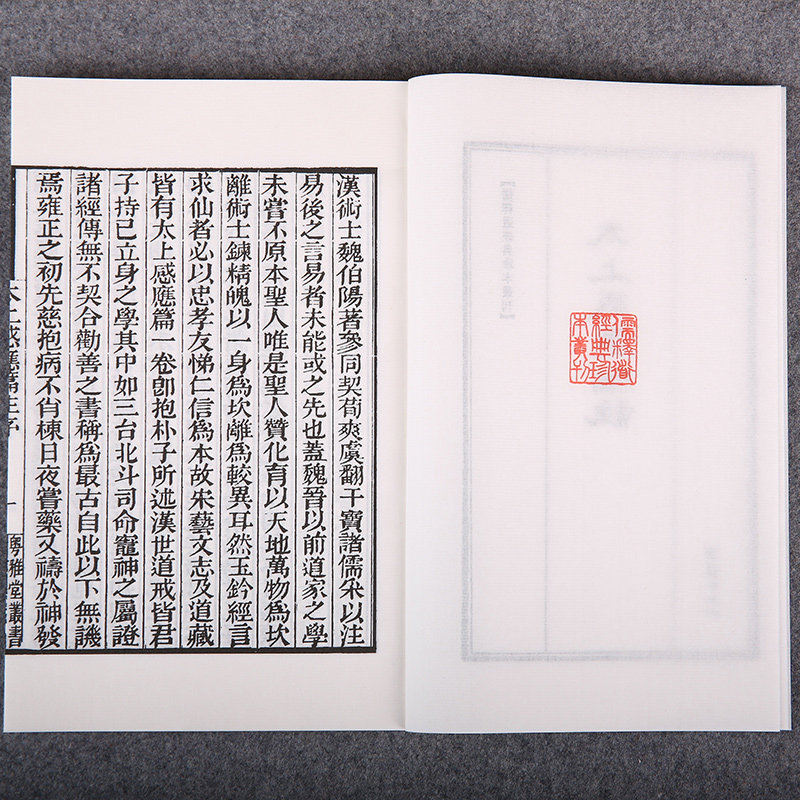 儒釋道
經典珍
本叢刊
漢術士魏伯陽著參同契荀爽虞翻干寶諸儒采以注
易後之言易者未能或之先也蓋魏晉以前道家之學
未嘗不原本聖人唯是聖人贊化育以天地萬物爲坎
離術士鍊精魄以一身爲坎離爲較異耳然玉鈐經言
求仙者必以忠孝友悌仁信爲本故宋藝文志及道藏
皆有太上感應篇一卷卽抱朴子所述漢世道戒皆君
子持已立身之學其中如三台北斗司命竈神之屬證
諸經傳無不契合勸善之書稱爲最古自此以下無譏
焉雍正之初先慈抱病不肖棟日夜嘗藥又禱於神發
太上感應篇注序 一 粵雅堂叢書